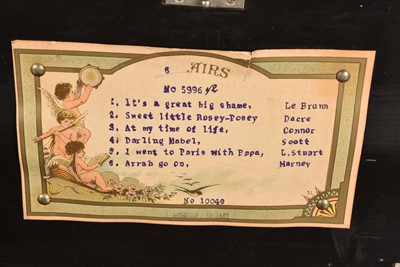 6 AIRS
No 5996 1/2
1. It's a great big shame, Le Brunn
2. Sweet little Rosey-Posey Dacre
3. At my time of life, Connor
4. Darling Mabel, Scott
5. I went to Paris with Papa, L.Stuart
6. Arrah go On, Marney
No 10040